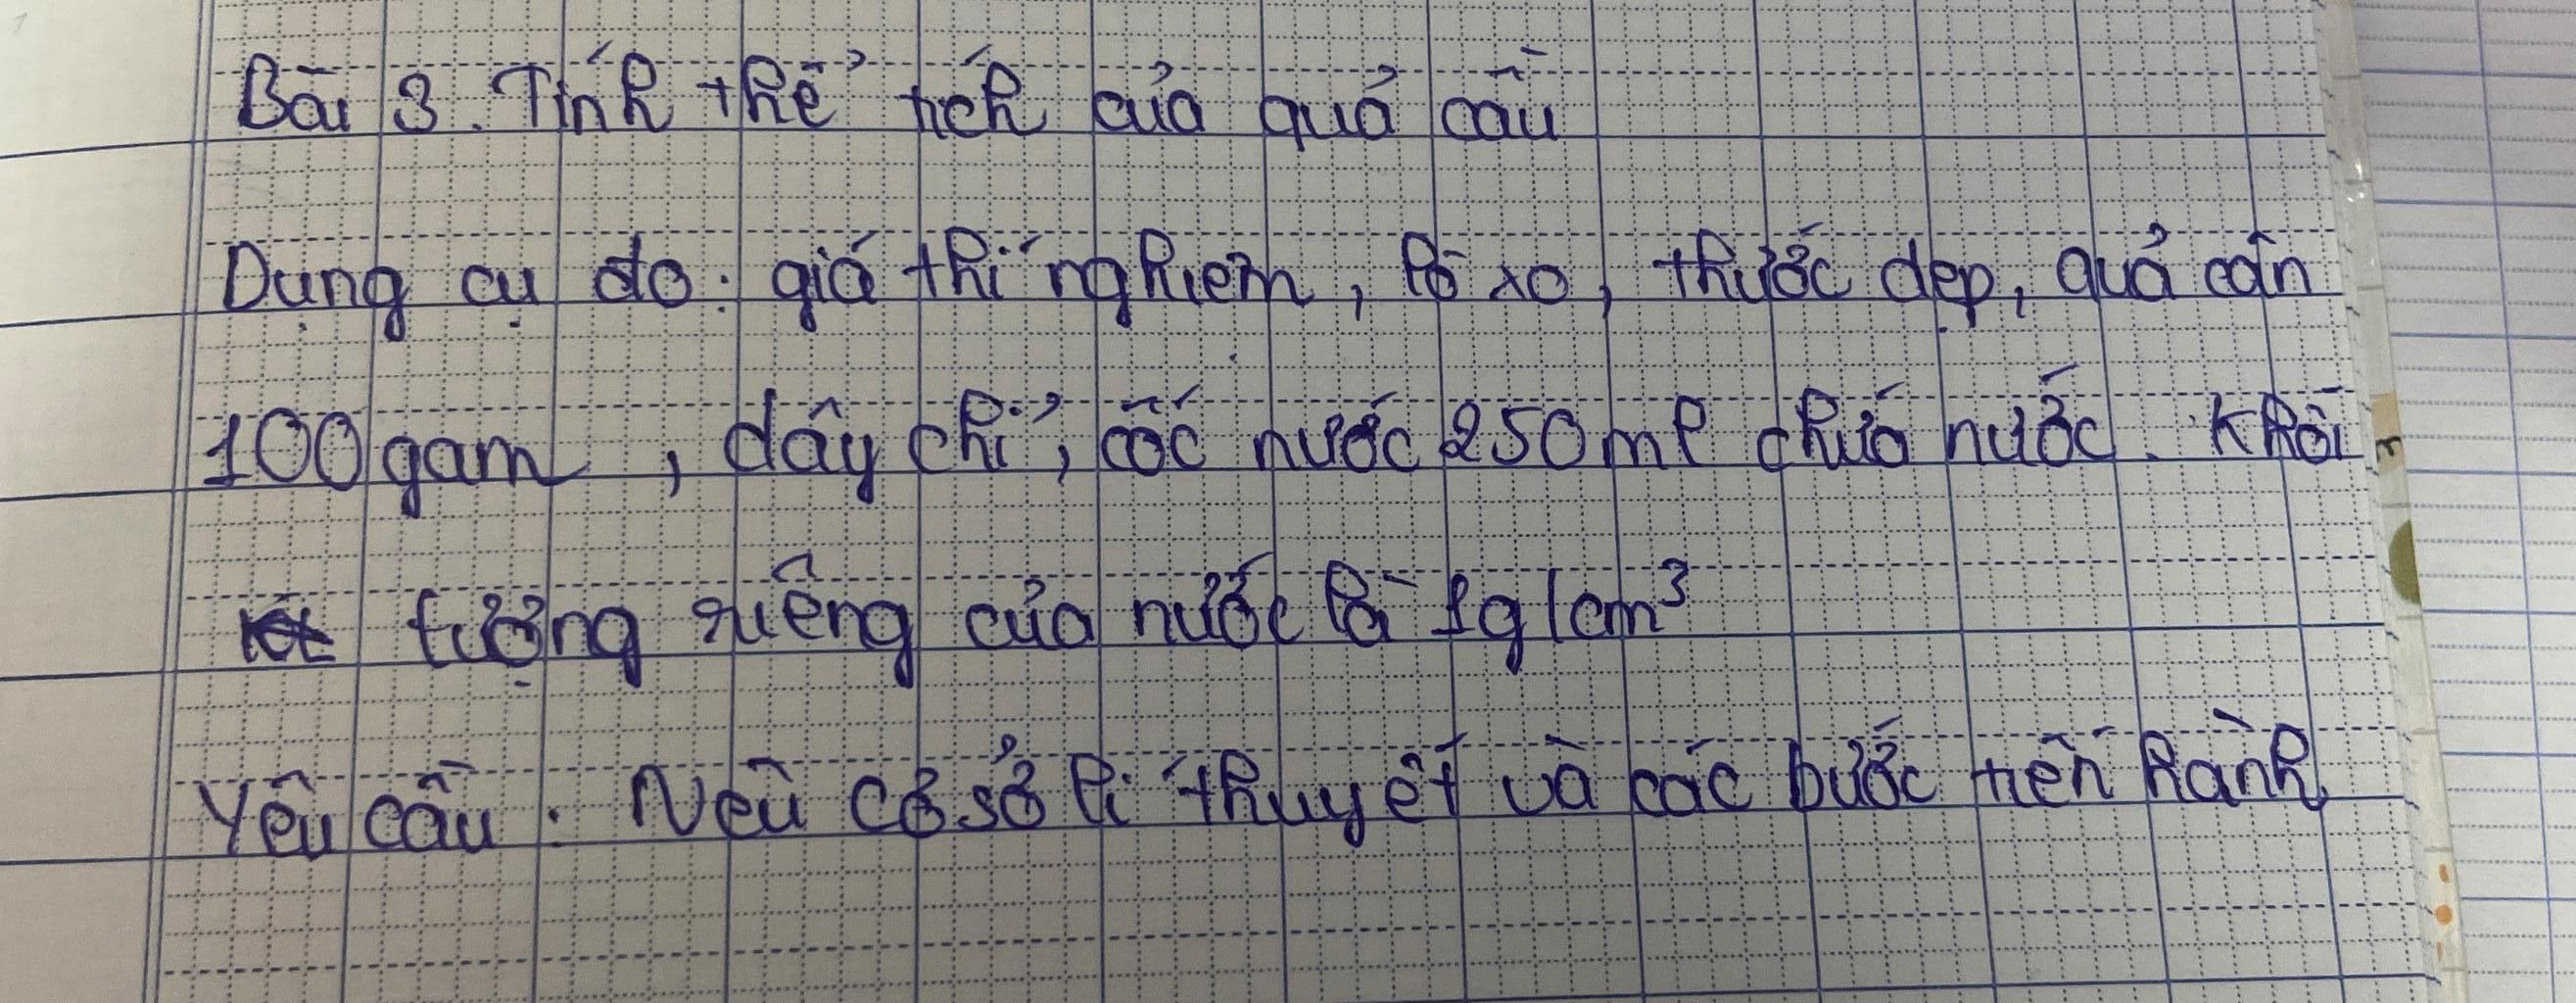 Bài 3. Tính thể tích của quả cầu
Dụng cụ đo: giá thí nghiệm, lò xo, thước dẹp, quả cân
100 gam, dây chỉ, cốc nước 250 ml chứa nước. Khối
lượng riêng của nước là 1g/cm³
Yêu cầu. Nêu cơ sở lí thuyết và các bước tiến hành